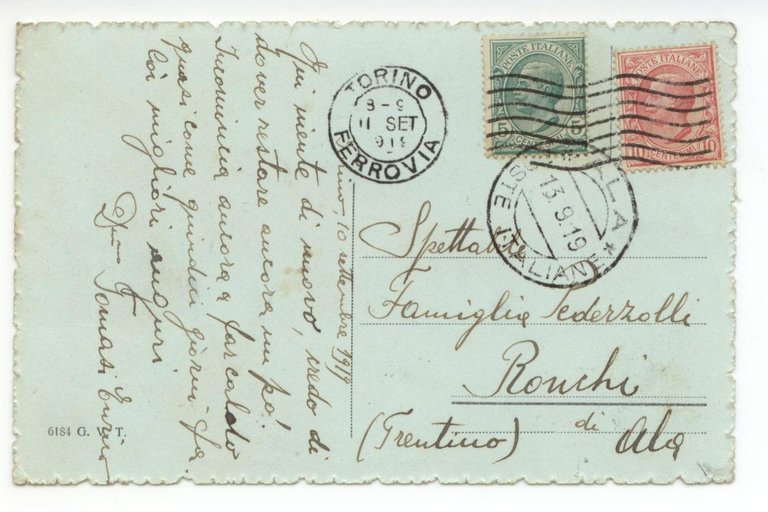 Torino, 10 settembre 1919
Qui niente di nuovo, credo di
dover restare ancora un po'.
Incomincia ancora a far caldo
quasi come quindici giorni fa.
Coi migliori auguri
Tomasi
6184 G. V. T.
TORINO
8-9
11 SET
1919
FERROVIA
POSTE ITALIANE
5 CENTESIMI 5
POSTE ITALIANE
10 CENTESIMI 10
ALA
13.9.19
POSTE ITALIANE
Spettabile
Famiglia Pederzolli
Ronchi
di
(Trentino) Ala